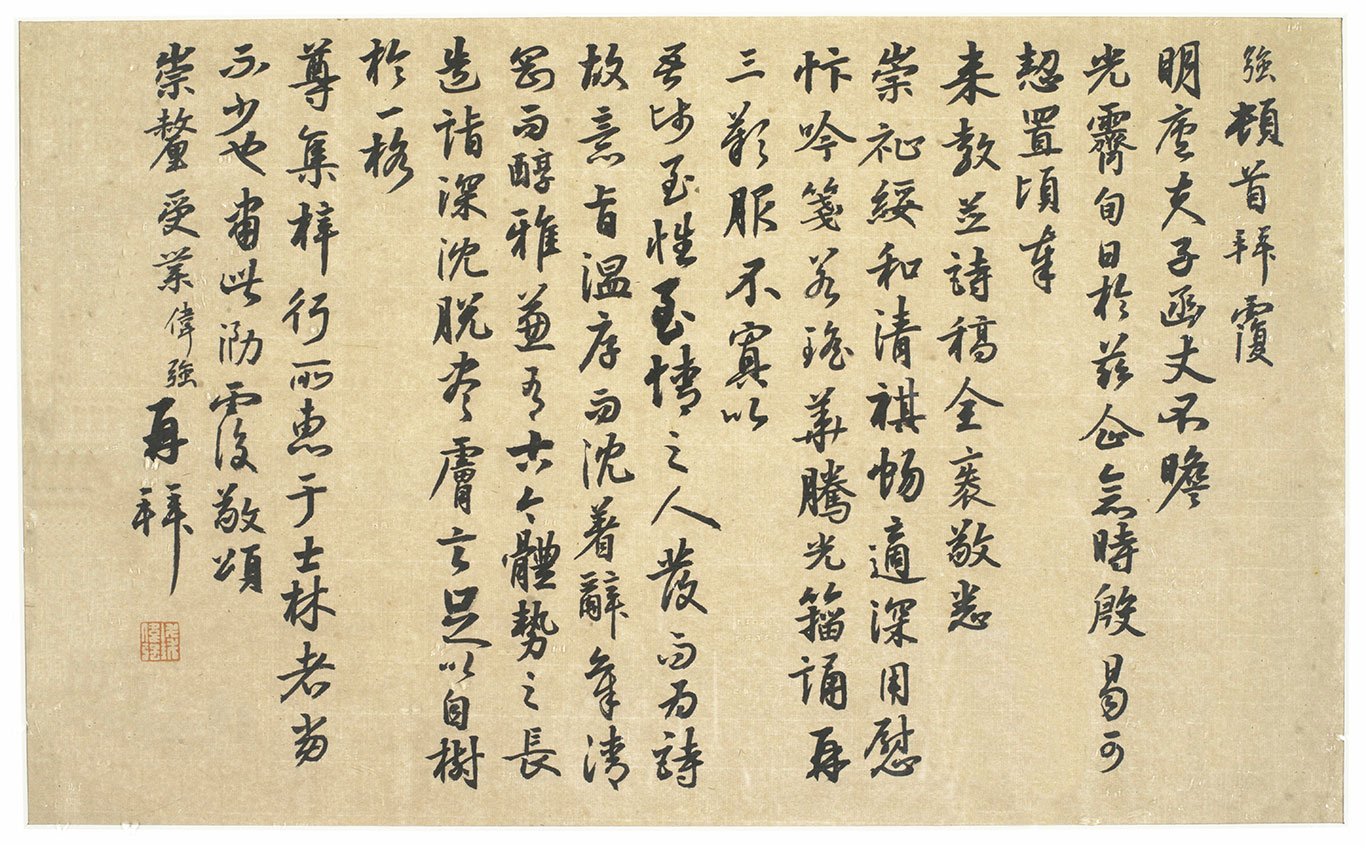 強頓首拜覆
明虛夫子函丈不瞻
光霽旬日於茲企念時殷曷可
恝置頃奉
来教並詩稿全袠敬悉
崇祉綏和清祺暢適深用慰
忭吟箋若瑤華騰光籀誦再
三歎服不寘以
吾師至性至情之人發而為詩
故意旨温厚而沈着辭氣清
剛而醇雅兼有古今體勢之長
造詣深沈脱尽膚言足以自樹
於一格
尊集梓行所惠于士林者当
不少也耑此泐覆敬頌
崇釐受業偉強再拜